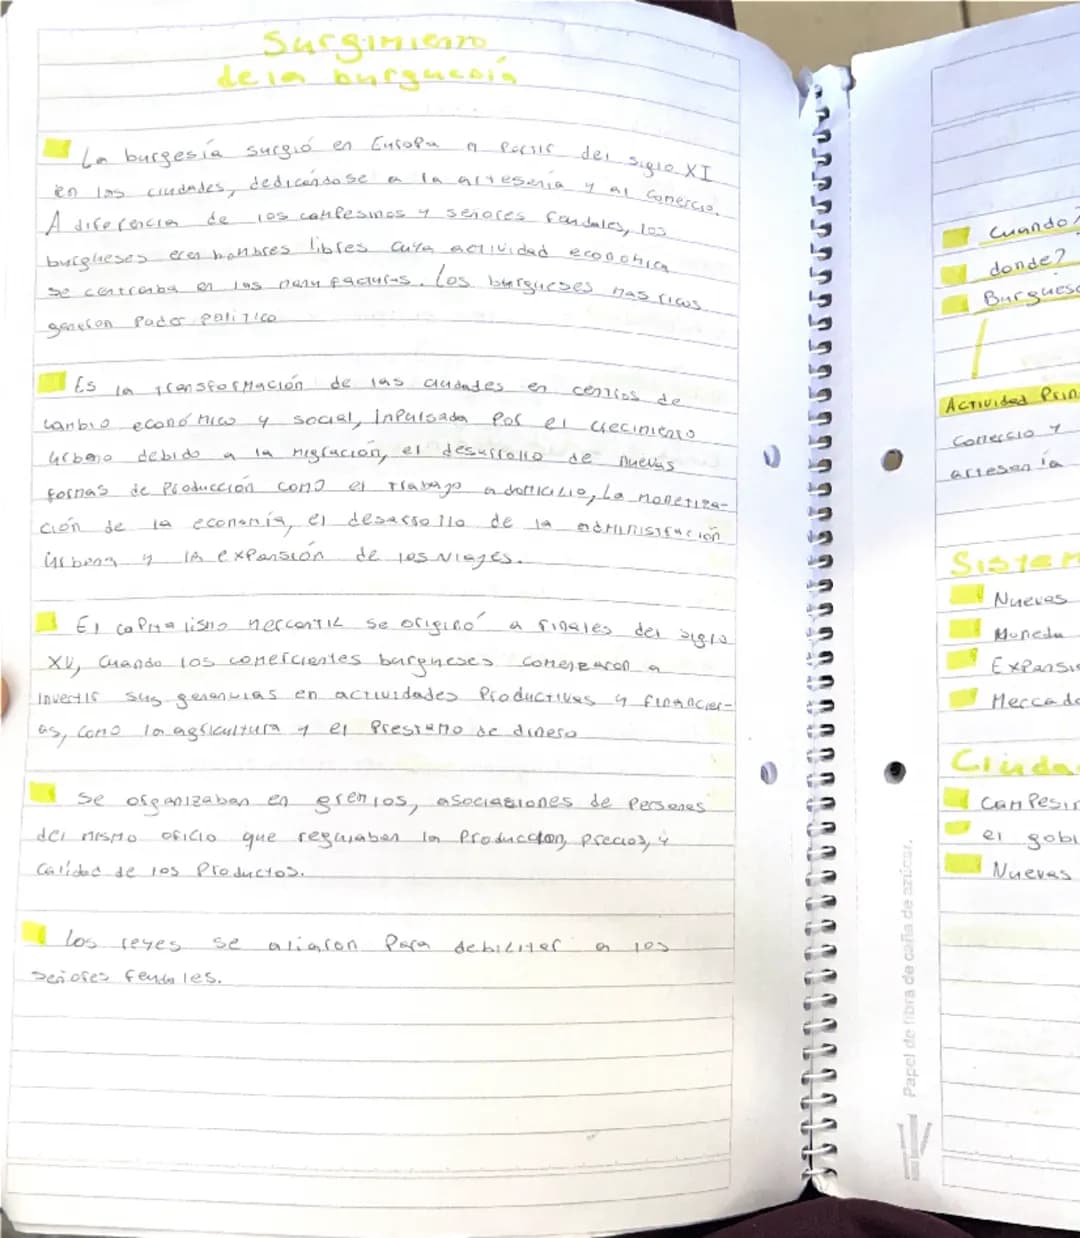 Surgimiento
de la burguesía
La burgesía surgió en Europa a partir del siglo XI
en las ciudades, dedicandose a la artesenía y al comercio.
A diferencia de los campesinos y señores feudales, los
burgueses eran hombres libres cuya actividad económica
se centraba en las manufacturas. Los burgueses mas ricos
ganaron Poder politico
Es la transformación de las ciudades en centros de
cambio económico y social, inpulsada por el crecimiento
urbano debido a la migración, el desarrollo de nuevas
formas de Producción como el trabajo a domicilio, La monetiza-
ción de la economía, el desarrollo de la administración
urbana y la expansión de los viajes.
El capitalismo mercantil se originó a finales del siglo
XV, Cuando los comerciantes burgueses comenzaron a
invertir sus ganancias en actividades Productivas y financier-
as, como la agricultura y el Prestamo de dinero
Se organizaban en gremios, asociasiones de Personas
del mismo oficio que regulaban la Producción, precios, y
Calidad de los Productos.
Los reyes se aliaron Para debilitar a los
señores feudales.
Cuando?
donde?
Burgues
Actividad Prin
Comercio y
artesanía
Sistem
Nuevas
Moneda
Expansi
Mercado
Ciuda
Campesin
el gobi
Nuevas
Papel de fibra de caña de azúcar.